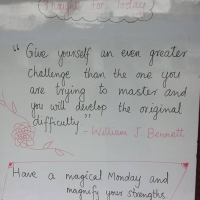 Thought for Today
"Give yourself an even greater
challenge than the one you
are trying to master and
you will develop the original
difficulty"
- William J. Bennett
Have a magical Monday and
magnify your strengths